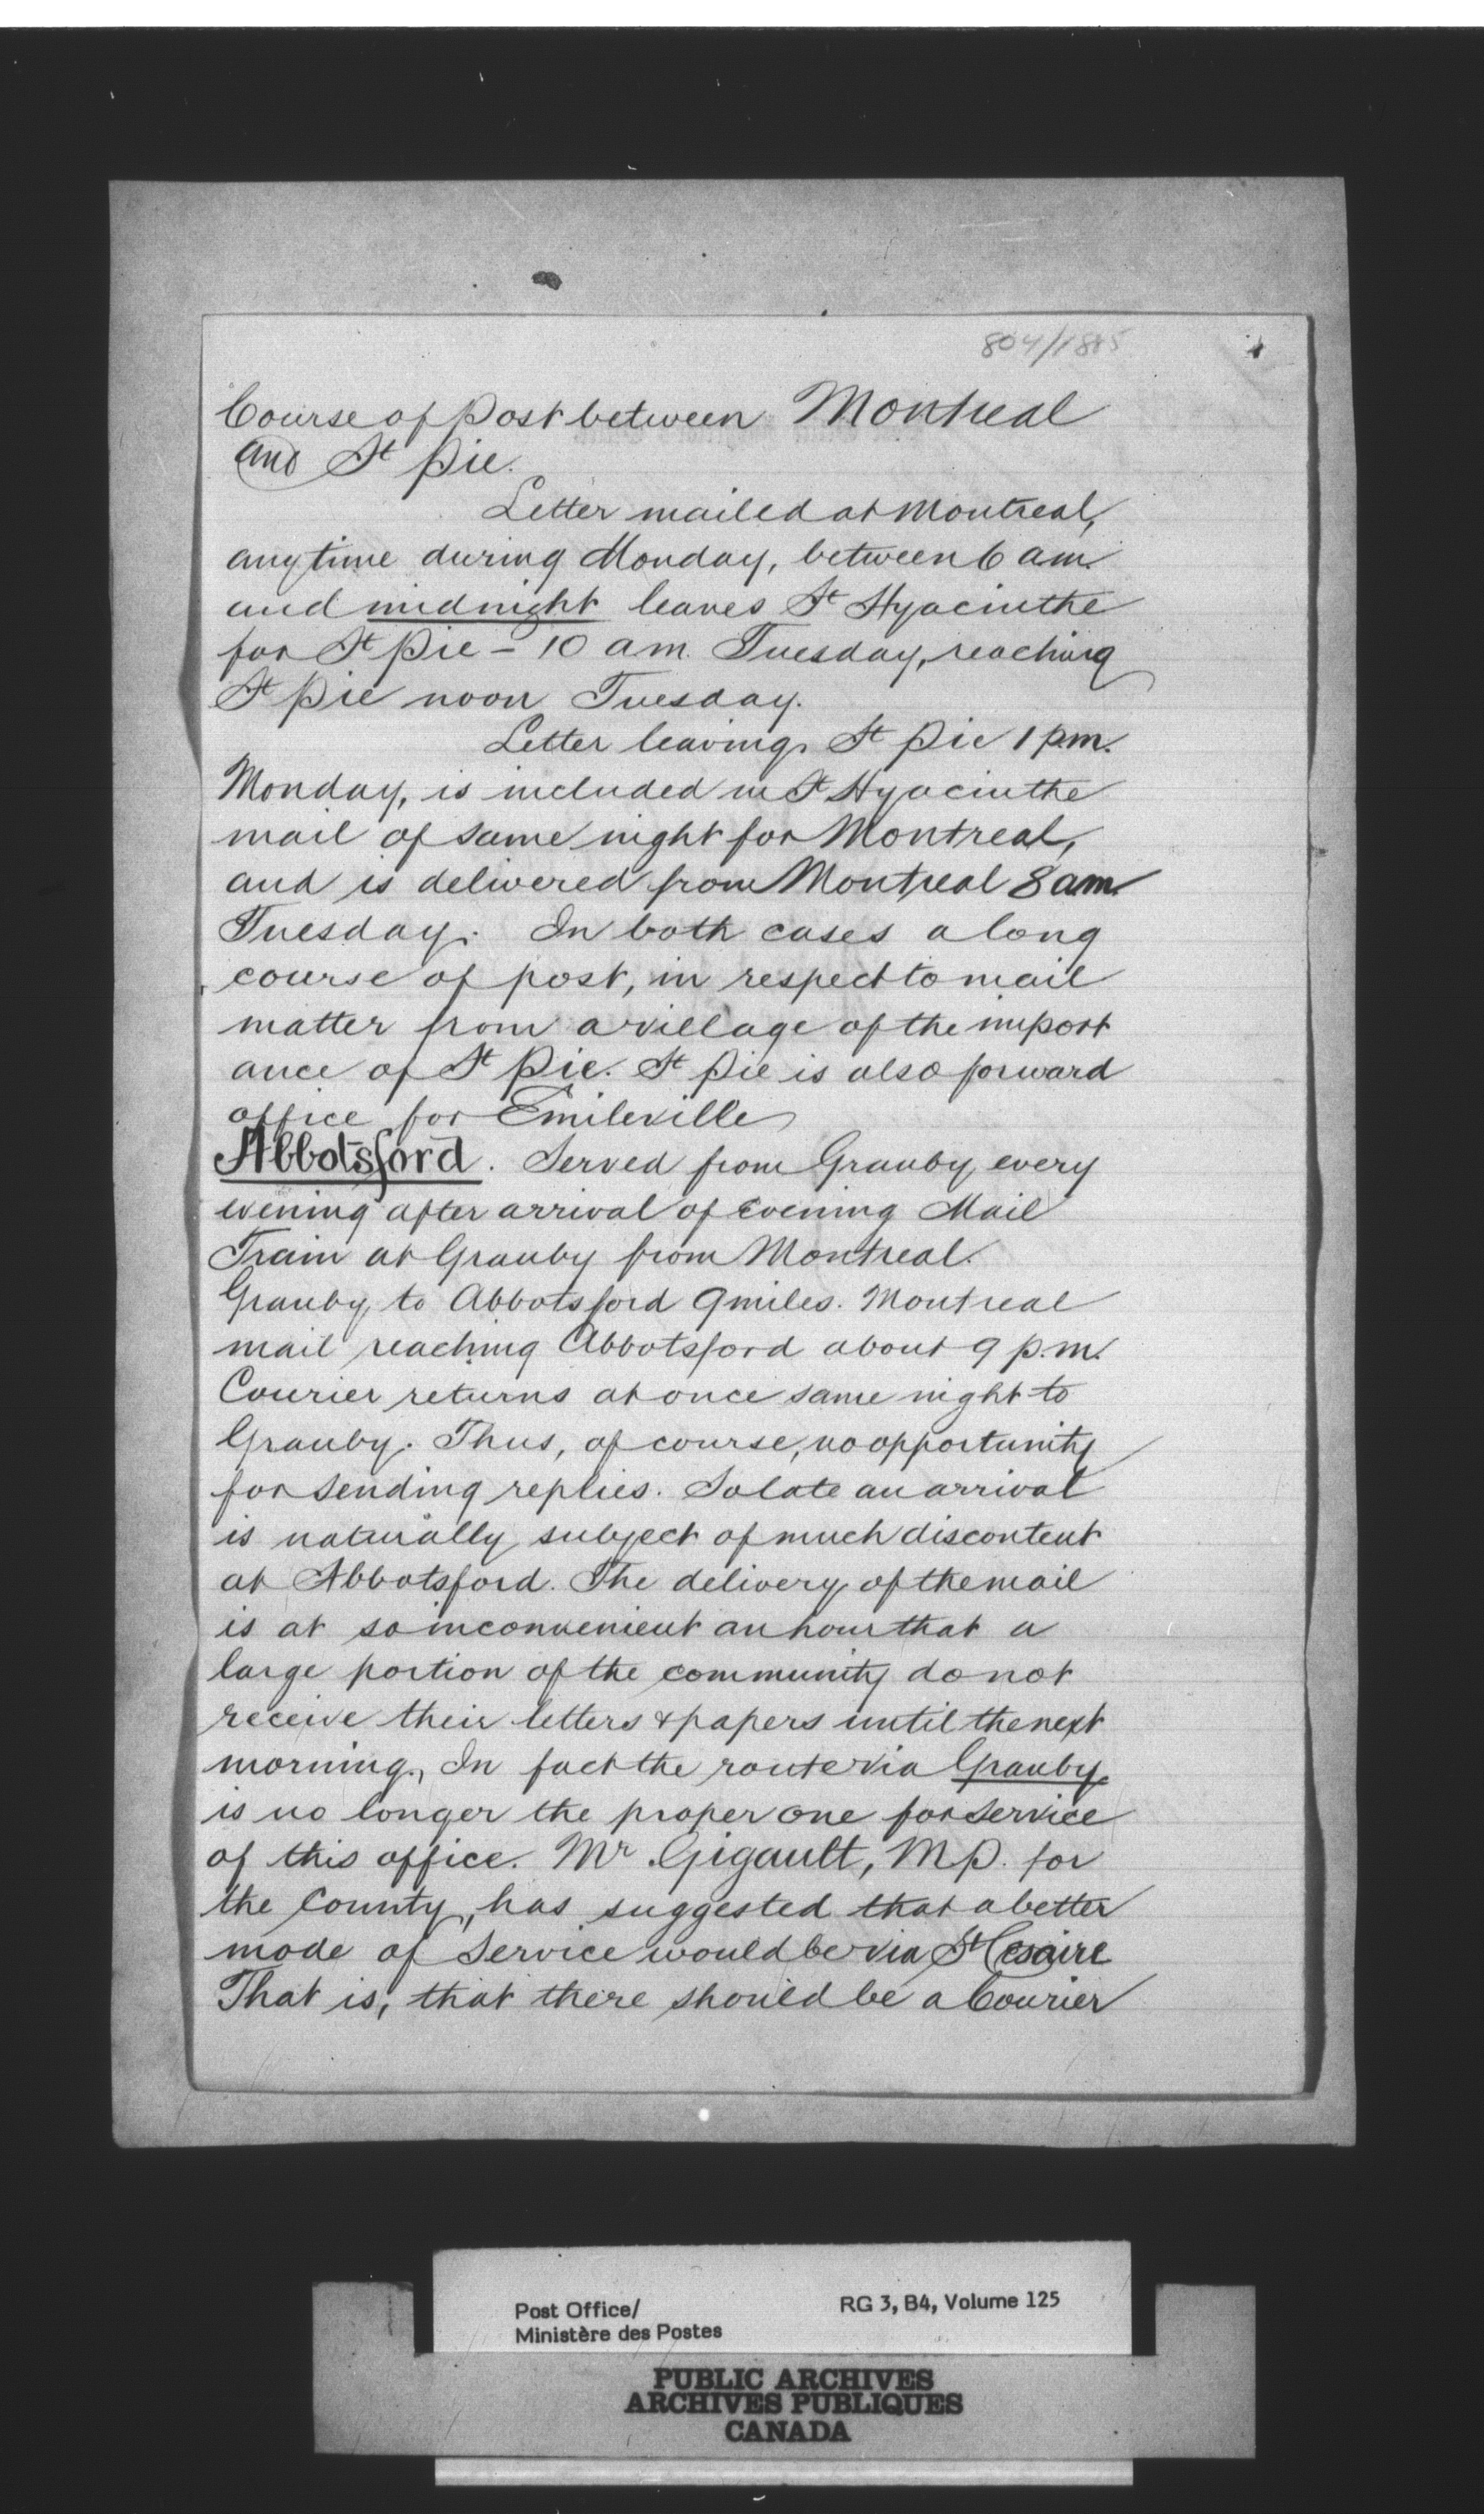 804/1885
Course of Post between Montreal
and St Pie.
Letter mailed at Montreal,
anytime during Monday, between 6 am.
and midnight leaves St Hyacinthe
for St Pie - 10 am. Tuesday, reaching
St Pie noon Tuesday.
Letter leaving St Pie 1 pm.
Monday, is included in St Hyacinthe
mail of same night for Montreal,
and is delivered from Montreal 8 am
Tuesday. In both cases a long
course of post, in respect to mail
matter from a village of the import
ance of St Pie. St Pie is also forward
office for Emileville
Abbotsford. Served from Granby every
evening after arrival of Evening Mail
Train at Granby from Montreal.
Granby to Abbotsford 9 miles. Montreal
mail reaching Abbotsford about 9 p.m.
Courier returns at once same night to
Granby. Thus, of course, no opportunity
for sending replies. So late an arrival
is naturally subject of much discontent
at Abbotsford. The delivery of the mail
is at so inconvenient an hour that a
large portion of the community do not
receive their letters & papers until the next
morning. In fact the route via Granby
is no longer the proper one for service
of this office. Mr Gigault, M.P. for
the County, has suggested that a better
mode of Service would be via St Cesaire
That is, that there should be a Courier
Post Office/
Ministère des Postes
RG 3, B4, Volume 125
PUBLIC ARCHIVES
ARCHIVES PUBLIQUES
CANADA